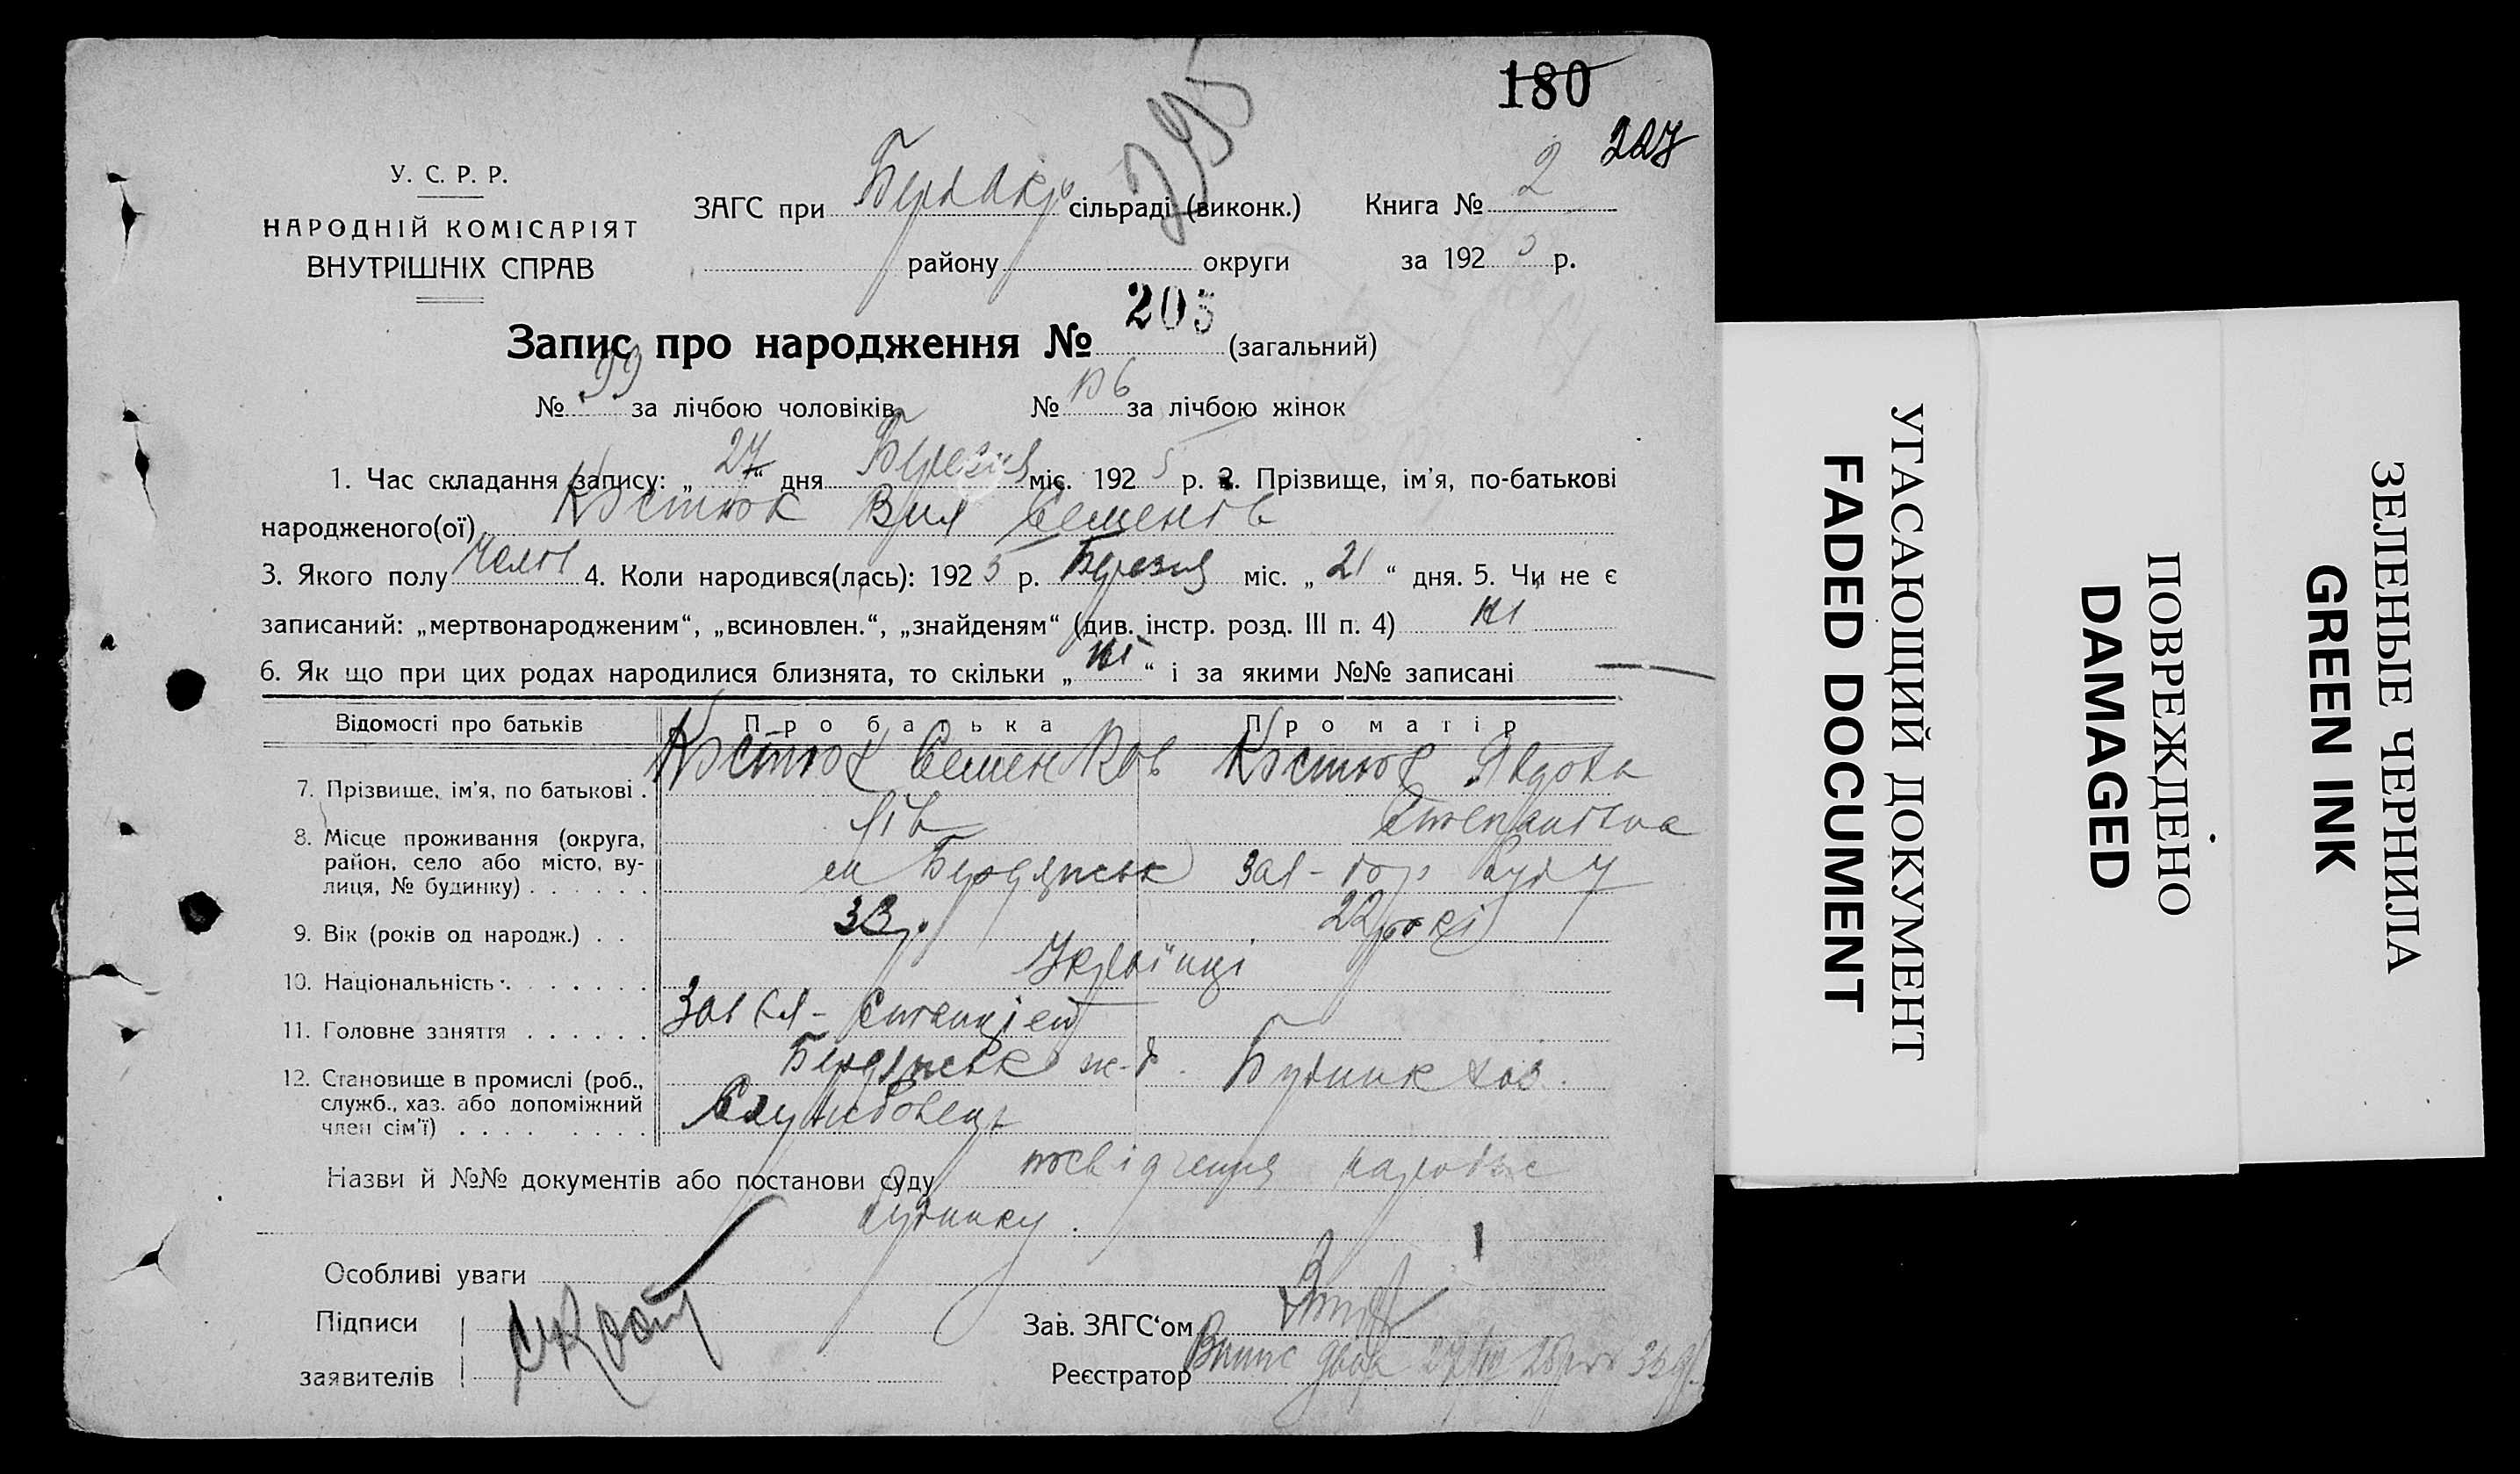 180
227
295
У. С. Р. Р.
НАРОДНІЙ КОМІСАРІЯТ
ВНУТРІШНІХ СПРАВ
ЗАГС при сільраді (виконк.) Книга № 2
району округи за 192 5 р.
Запис про народження № 205 (загальний)
№ 99 за лічбою чоловіків № 106 за лічбою жінок
1. Час складання запису: „ 27 “ дня Березня міс. 192 5 р. 2. Прізвище, ім'я, по-батькові
народженого(ої) Костюк Віля Семенов
3. Якого полу 4. Коли народився(лась): 192 5 р. Березня міс. „ 21 “ дня. 5. Чи не є
записаний: „мертвонародженим“, „всиновлен.“, „знайденям“ (див. інстр. розд. III п. 4) ні
6. Як що при цих родах народилися близнята, то скільки „ ні “ і за якими №№ записані —
Відомості про батьків Про батька Про матір
7. Прізвище, ім'я, по батькові . Костюк Семен Костюк Явдоха
Степановна
8. Місце проживання (округа,
район, село або місто, ву-
лиця, № будинку) . . . . . . м Бердянськ
9. Вік (років од народж.) . . 33 р. 22 рокі
10. Національність . . . . . . . Українці
11. Головне заняття . . . . . . Станцією
Бердянськ ж-д. Будинк хоз.
12. Становище в промислі (роб.,
служб., хаз. або допоміжний
член сім'ї) . . . . . . . . . Службовець
Назви й №№ документів або постанови суду посвідчення
будинку.
Особливі уваги
Підписи
заявителів
Зав. ЗАГС'ом
Реєстратор
УГАСАЮЩИЙ ДОКУМЕНТ
FADED DOCUMENT
ПОВРЕЖДЕНО
DAMAGED
ЗЕЛЕНЫЕ ЧЕРНИЛА
GREEN INK